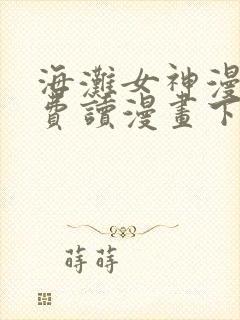 海灘女神漫
費讀漫畫下
蒔蒔